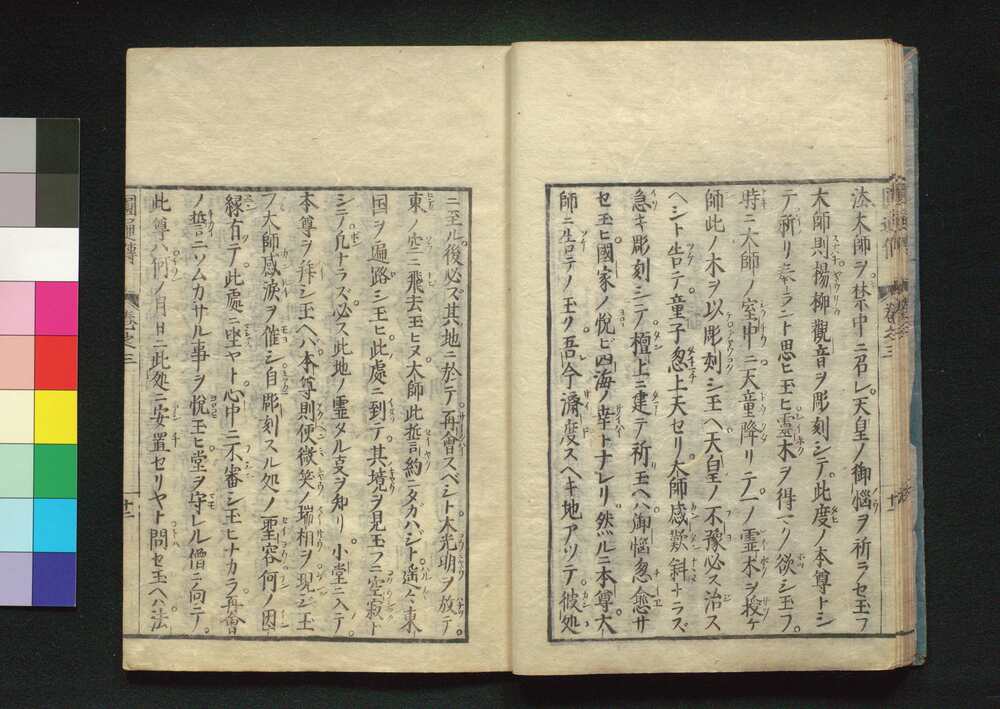 法大師ヲ禁中ニ召レ天皇ノ御惱ヲ祈ラセ玉フ
大師則楊柳觀音ヲ彫刻シテ此度ノ本尊トシ
テ祈リ奉ラント思ヒ玉ヒ霊木ヲ得マク欲シ玉フ
時ニ大師ノ室中ニ天童降リテ一ノ霊木ヲ授ケ
師此ノ木ヲ以彫刻シ玉ヘ天皇ノ不豫必ス治ス
ヘシト告テ童子忽上天セリ大師感歎斜ナラズ
急キ彫刻シテ檀上ニ建テ祈玉ヘハ御惱忽愈サ
セ玉ヒ國家ノ悦ビ四海ノ幸トナレリ然ルニ本尊大
師ニ告テノ玉ク吾今濟度スヘキ地アツテ彼処
ニ至ル後必ス其地ニ於テ再會スベシト大光明ヲ放テ
東ノ空ニ飛去玉ヒヌ大師此誓約ニタガハジト遥々東
国ヲ遍路シ玉ヒ此處ニ到テ其境ヲ見玉フニ空寂ト
シテ凡ナラズ必ス此地ノ霊タル支ヲ知リ小堂ニ入テ
本尊ヲ拜シ玉ヘハ本尊則便微笑ノ瑞相ヲ現シ玉
フ大師感涙ヲ催シ自彫刻スル処ノ聖容何ノ因
縁有テ此處ニ坐ヤト心中ニ不審シ玉ヒナカラ再會
ノ誓ニソムカサル事ヲ悦玉ヒ堂ヲ守レル僧ニ向テ
此尊ハ何ノ月日ニ此処ニ安置セリヤト問セ玉ヘハ法
圓通傳
卷之三
十二